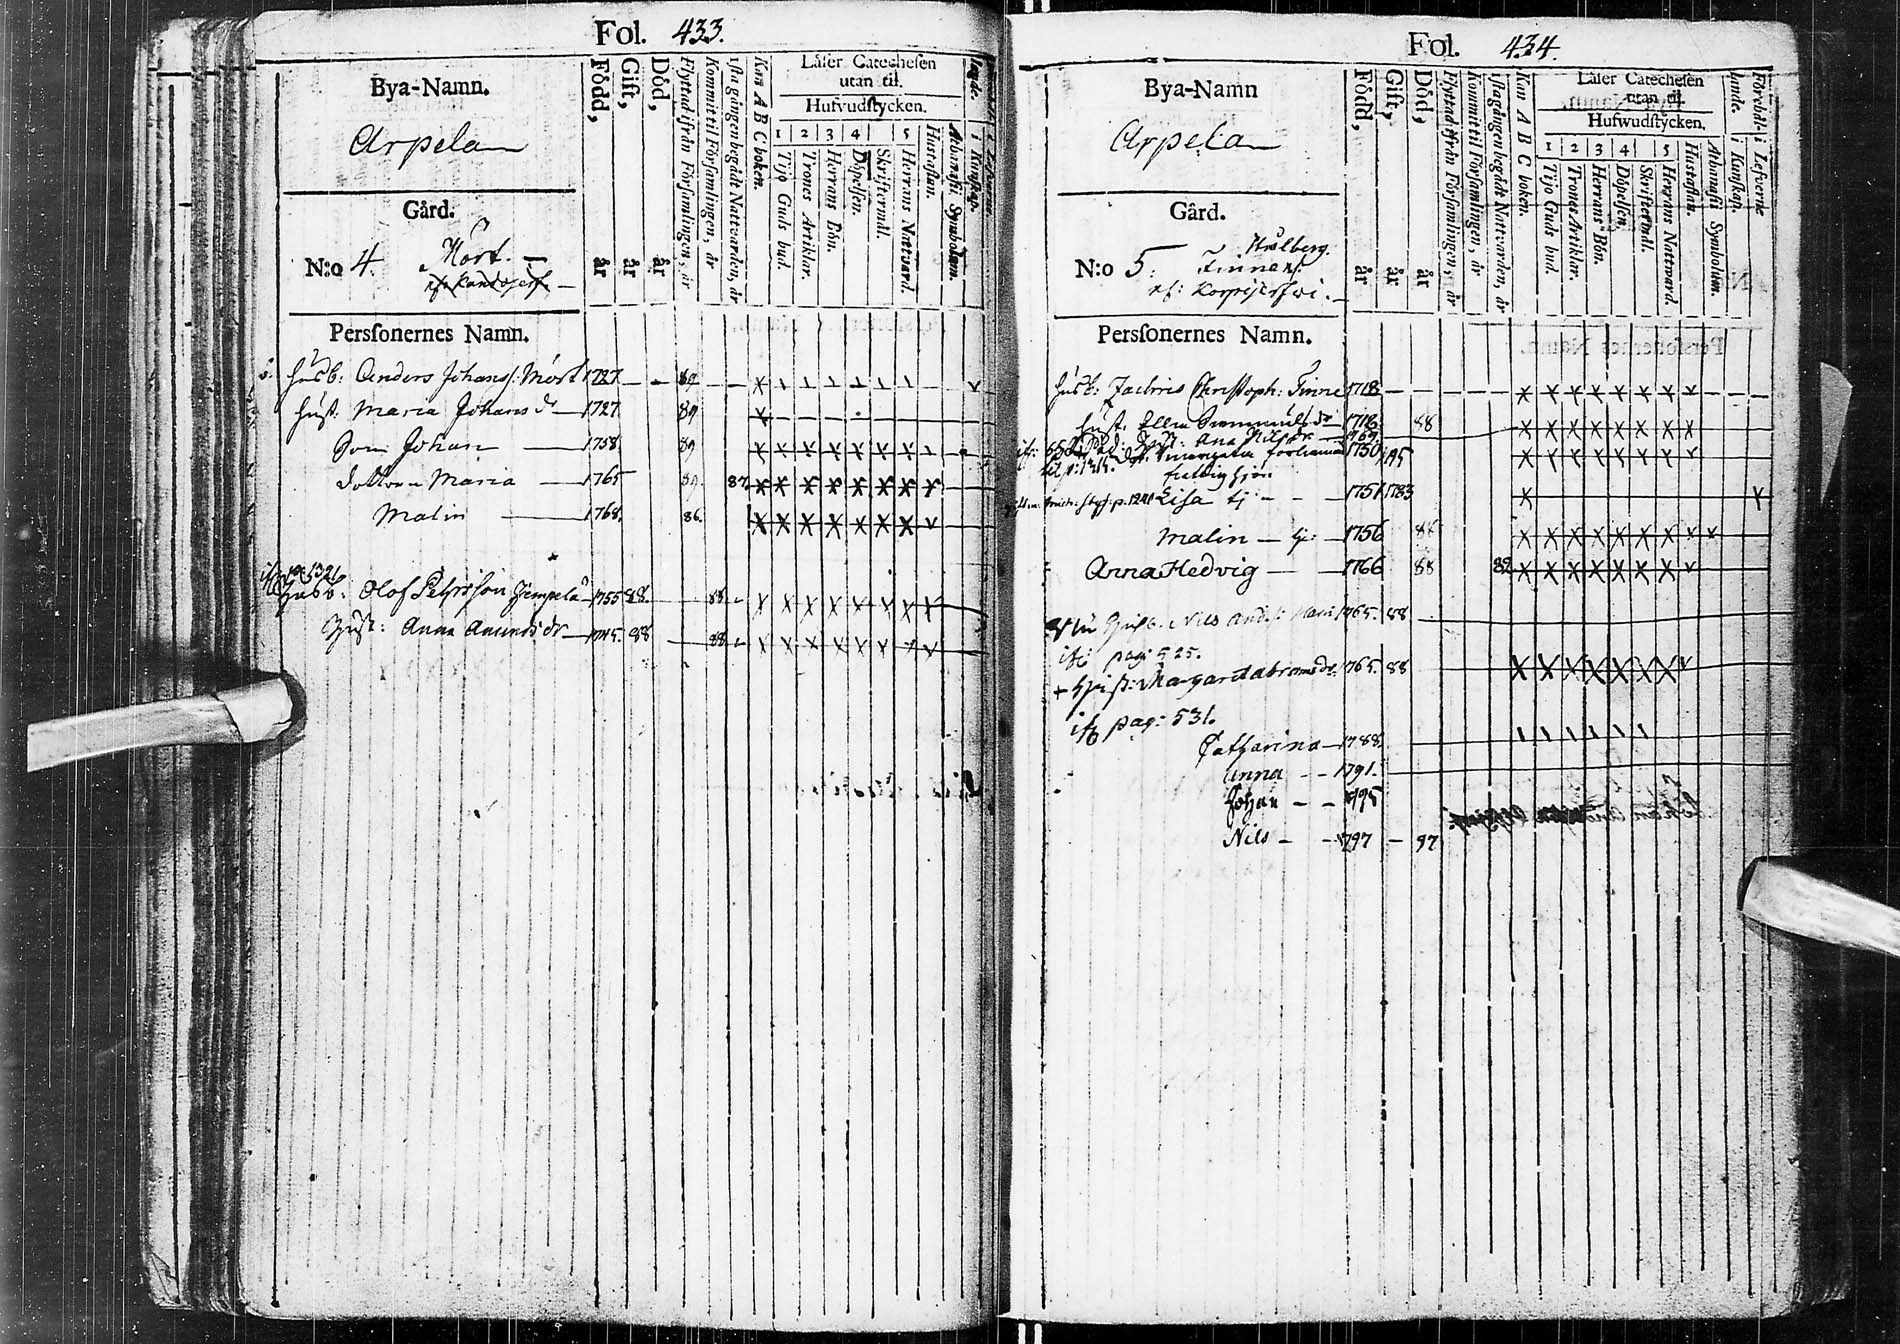 Fol. 433.
Bya-Namn.
Arpela
Gård.
N:o 4. Mört.
Persſonernes Namn.
Född, år
Gift, år
Död, år
Flyttad ifrån Församlingen, år
Kommit til Församlingen, år
1sta gången begådt Nattvarden, år
Kan A B C boken.
Låſer Catecheſen
utan til.
Hufvudſtycken.
1 2 3 4 5
Tijo Guds bud.
Trones Artiklar.
Herrans Bön.
Döpelſen.
Skriftermål.
Herrans Nattvard.
Huſtaflan.
Athanaſii Symbolum.
i Kunſkap.
husb: Anders Johansſ: Mört 1727 89
hust: Maria Johans dr 1727 89
Son Johan 1758 89
dottren Maria 1765 89 87
Malin 1768 86
Husb: Olof Pehrsſon Jempelä 1755 88. 88
Hust: Anna Amunds dr 1745. 88 88
Fol. 434.
Bya-Namn
Arpela
Gård.
N:o 5. Stålberg.
Finne
Persſonernes Namn.
Född, år
Gift, år
Död, år
Flyttad ifrån Församlingen, år
Kommit til Församlingen, år
1sta gången begådt Nattvarden, år
Kan A B C boken.
Låſer Catecheſen
utan til.
Hufwudſtycken.
1 2 3 4 5
Tijo Guds bud.
Trones Artiklar.
Herrans Bön.
Döpelſen.
Skriftermål.
Herrans Nattvard.
Huſtaflan.
Athanaſii Symbolum.
Förehållande.
i Kunſkap.
i Lefverne
husb: Zachris Christoph: Finne 1718
hust. Ellin 1718 88
Ana Nils dr
Margeta 1750 95
fattighjon
Lisa tj: 1751 1783
Malin tj: 1756 86
Anna Hedvig 1766 88 82
Husb. Nils And: 1765. 88
ifr pag: 525.
+ Hust: Margar. Abrams dr. 1765. 88
ifr pag: 531.
Catharina 1788.
Anna 1791.
Johan 1795
Nils 1797 97